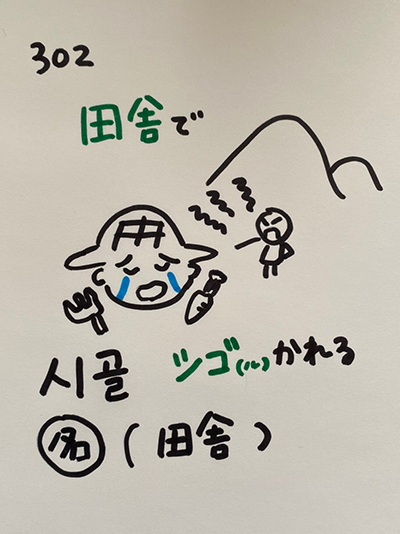 302
田舎で
시골 ツゴ(ル)かれる
名 (田舎)